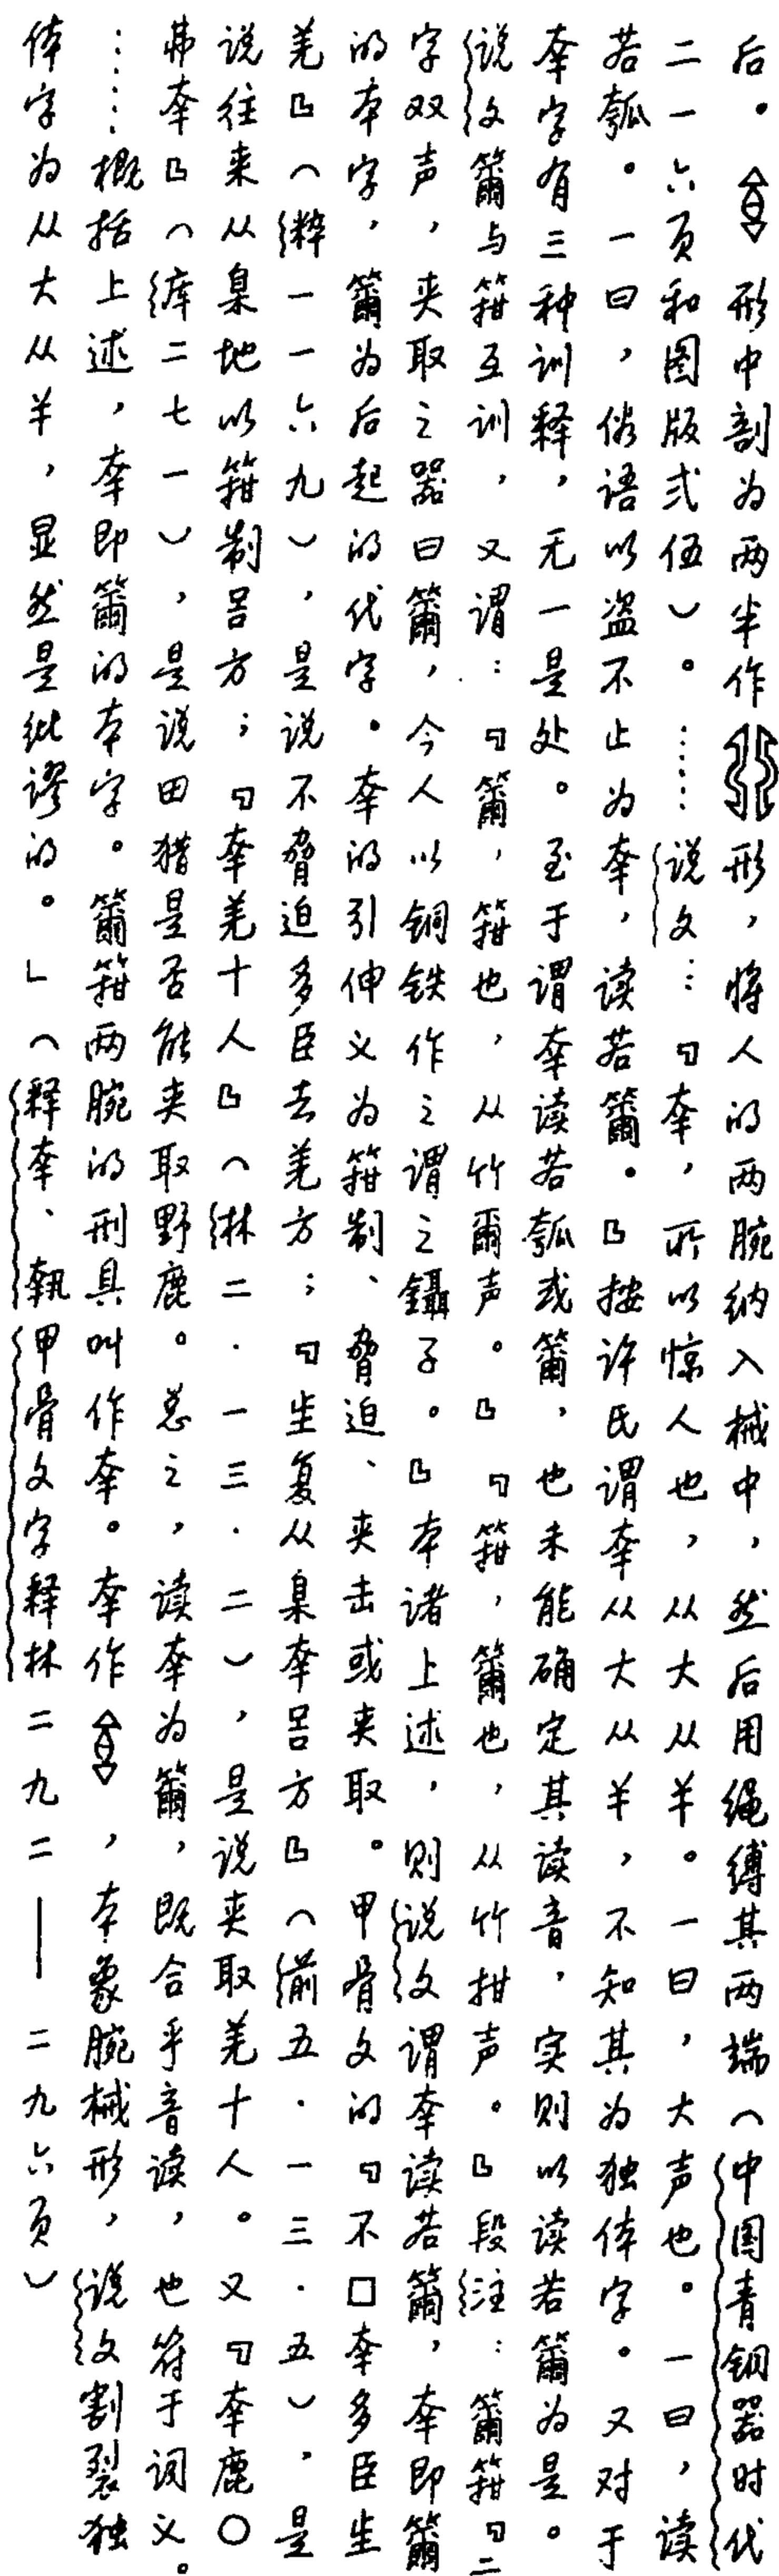 后。形中剖为两半作形,将人的两腕纳入械中,然后用绳缚其两端(中国青铜器时代
二一六页和图版弍伍)。……说文:『㚔,所以惊人也,从大从羊。一曰,大声也。一曰,读
若瓠。一曰,俗语以盗不止为㚔,读若籋。』按许氏谓㚔从大从羊,不知其为独体字。又对于
㚔字有三种训释,无一是处。至于谓㚔读若瓠或籋,也未能确定其读音,实则以读若籋为是。
说文籋与箝互训,又谓:『籋,箝也,从竹爾声。』『箝,籋也,从竹拑声。』段注:籋箝『二
字双声,夹取之器曰籋,今人以铜铁作之谓之鑷子。』本诸上述,则说文谓㚔读若籋,㚔即籋
的本字,籋为后起的代字。㚔的引伸义为箝制、脅迫、夹击或夹取。甲骨文的『不□㚔多臣㞷
羌』(粹一一六九),是说不脅迫多臣去羌方;『㞷复从臬㚔吕方』(前五·一三·五),是
说往来从臬地以箝制吕方;『㚔羌十人』(林二·一三·二),是说夹取羌十人。又『㚔鹿〇
弗㚔』(库二七一),是说田猎是否能夹取野鹿。总之,读㚔为籋,既合乎音读,也符于词义。
……概括上述,㚔即籋的本字。籋箝两腕的刑具叫作㚔。㚔作,本象腕械形,说文割裂独
体字为从大从羊,显然是纰谬的。」(释㚔、執甲骨文字释林二九二——二九六页)